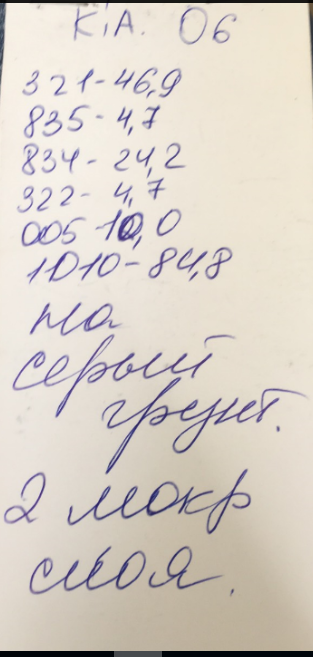 KIA. 06
321-46,9
835-4,7
834-24,2
322-4,7
005-10,0
1D10-84,8
на
серый
грунт.
2 мокр
слоя.